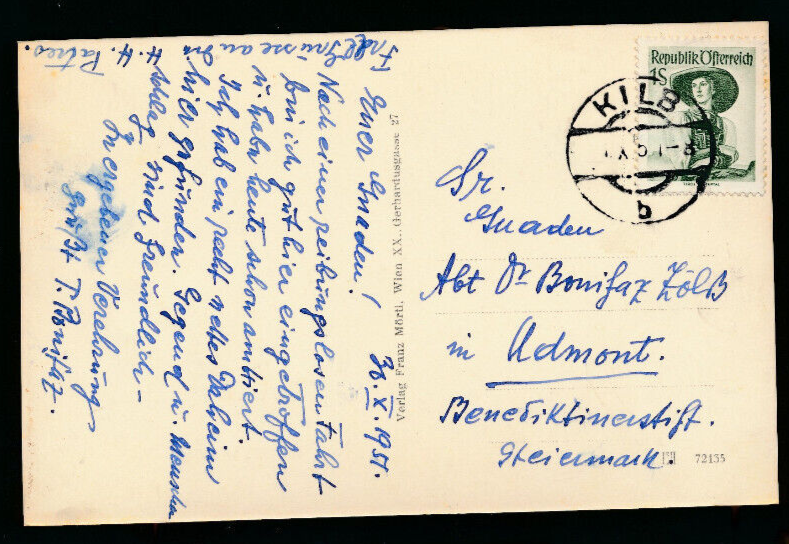 Frdl. Grüsse an die
H. H. Patres.
30. X. 1951.
Euer Gnaden!
Nach einer reibungslosen Fahrt
bin ich gut hier eingetroffen
u. habe heute schon amtiert.
Ich hab ein recht nettes Daheim
hier gefunden. Gegend u. Menschen
schlag sind freundlich –
In ergebener Verehrung
P. Bonifaz.
Verlag Franz Mörtl, Wien XX., Gerhardusgasse 27
Republik Österreich
1S
KILB
b
Sr.
Gnaden
Abt Dr Bonifaz Zölß
in Admont.
Benediktinerstift.
Steiermark.
72135